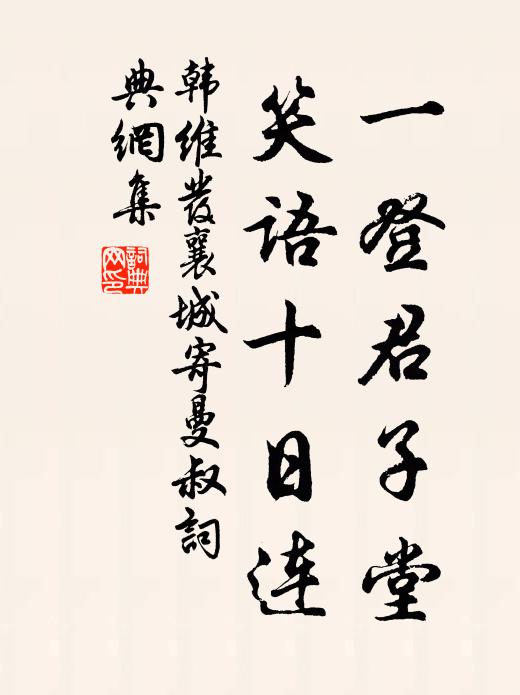 一登君子堂
笑语十日連
韩維发襄城寄曼叔詞
典網集
詞典
网印